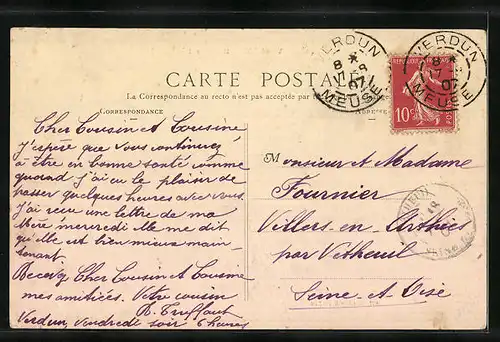 CARTE POSTALE
La Correspondance au recto n'est pas acceptée par
CORRESPONDANCE
Cher Cousin et Cousine
J'espère que vous continuez
à être en bonne santé comme
quand j'ai eu le plaisir de
passer quelques heures avec vous.
J'ai reçu une lettre de ma
Mère mercredi elle me dit
qu'elle est bien mieux main-
tenant.
Recevez Cher Cousin et Cousine
mes amitiées. Votre cousin
R. Truffaut
Verdun, Vendredi soir 6 heures
VERDUN
MEUSE
RÉPUBLIQUE FRANÇAISE
10c
POSTES
VERDUN
MEUSE
Monsieur et Madame
Fournier
Villers en Arthies
par Vetheuil
Seine-et-Oise